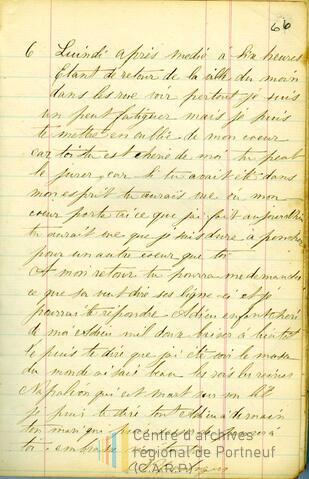 66
6 Luindi après medié à six heures
Etant de retour de la ville du moin
dans les rue voir partout je suis
un peut fatiguer mais je puis
te mettre en oublie de mon coeur
car toi tu est chère de moi tu peut
le jurer, car si tu avait été dans
mon esprit tu aurais vue où mon
coeur porte
tu aurait vue que je suis dure à
pour un autre coeur que toi
A mon retour tu pourra me demander
ce que sa veut dire ses ligne ci et je
pourrai te répondre Adieu enfant chéri
de moi Adieu mil doux baiser à bientôt
Je puis te dire que j'ai été voir le musé
du monde
Napoléon qui est mort sur son lit
je puis te dire tout Adieu à demain
ton mari qui
toi embrasse
Centre d'archives
régional de Portneuf
(C.A.R.P.)